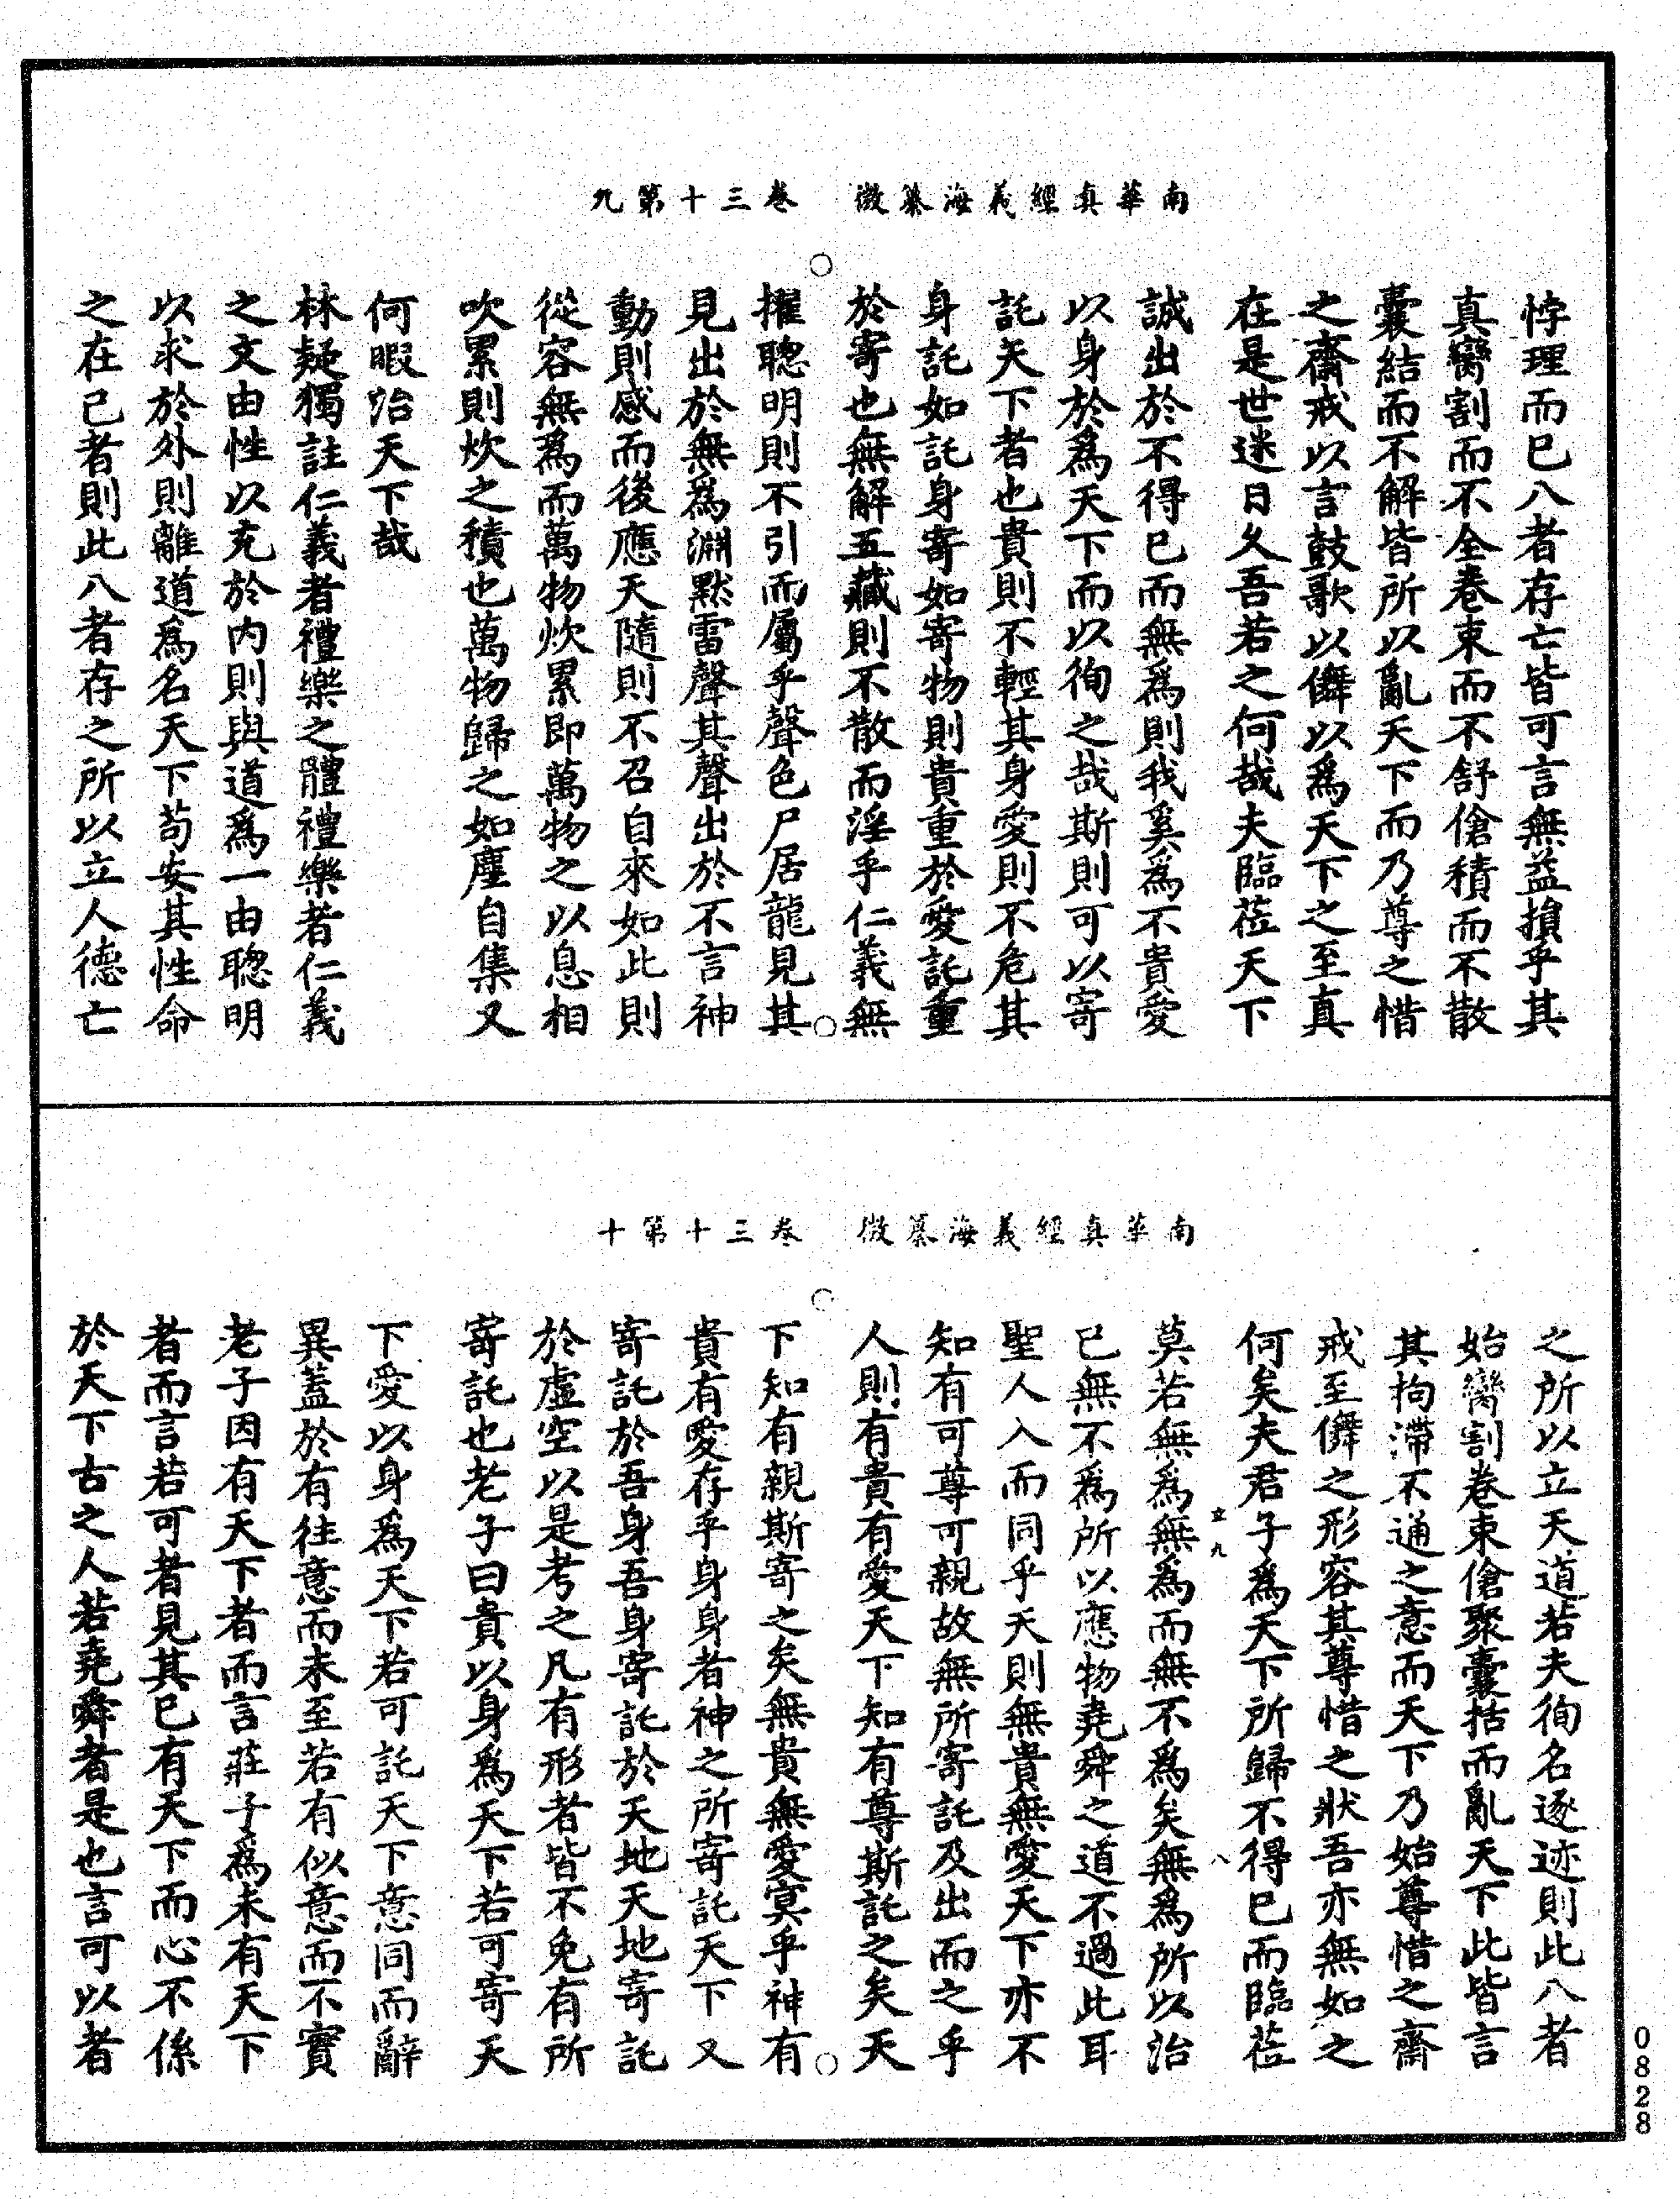 南華真經義海纂微　卷三十第九
悖理而巳八者存亡皆可言無益損乎其
真臠割而不全卷束而不舒傖積而不散
囊結而不解皆所以亂天下而乃尊之惜
之齋戒以言鼓歌以儛以爲天下之至真
在是世迷日久吾若之何哉夫臨莅天下
誠出於不得巳而無爲則我奚爲不貴愛
以身於爲天下而以徇之哉斯則可以寄
託天下者也貴則不輕其身愛則不危其
身託如託身寄如寄物則貴重於愛託重
於寄也無解五藏則不散而淫乎仁義無
擢聰明則不引而屬乎聲色尸居龍見其
見出於無爲淵默雷聲其聲出於不言神
動則感而後應天隨則不召自來如此則
從容無爲而萬物炊累即萬物之以息相
吹累則炊之積也萬物歸之如塵自集又
何暇治天下哉
林疑獨註仁義者禮樂之體禮樂者仁義
之文由性以充於內則與道爲一由聰明
以求於外則離道爲名天下苟安其性命
之在己者則此八者存之所以立人德亡
南華真經義海纂微　卷三十第十
之所以立天道若夫徇名逐迹則此八者
始臠割卷束傖聚囊括而亂天下此皆言
其拘滯不通之意而天下乃始尊惜之齋
戒至儛之形容其尊惜之狀吾亦無如之
何矣夫君子爲天下所歸不得巳而臨莅
莫若無爲無爲而無不爲矣無爲所以治
己無不爲所以應物堯舜之道不過此耳
聖人入而同乎天則無貴無愛天下亦不
知有可尊可親故無所寄託及出而之乎
人則有貴有愛天下知有尊斯託之矣天
下知有親斯寄之矣無貴無愛冥乎神有
貴有愛存乎身身者神之所寄託天下又
寄託於吾身吾身寄託於天地天地寄託
於虛空以是考之凡有形者皆不免有所
寄託也老子曰貴以身爲天下若可寄天
下愛以身爲天下若可託天下意同而辭
異蓋於有往意而未至若有似意而不實
老子因有天下者而言莊子爲未有天下
者而言若可者見其巳有天下而心不係
於天下古之人若堯舜者是也言可以者
0828